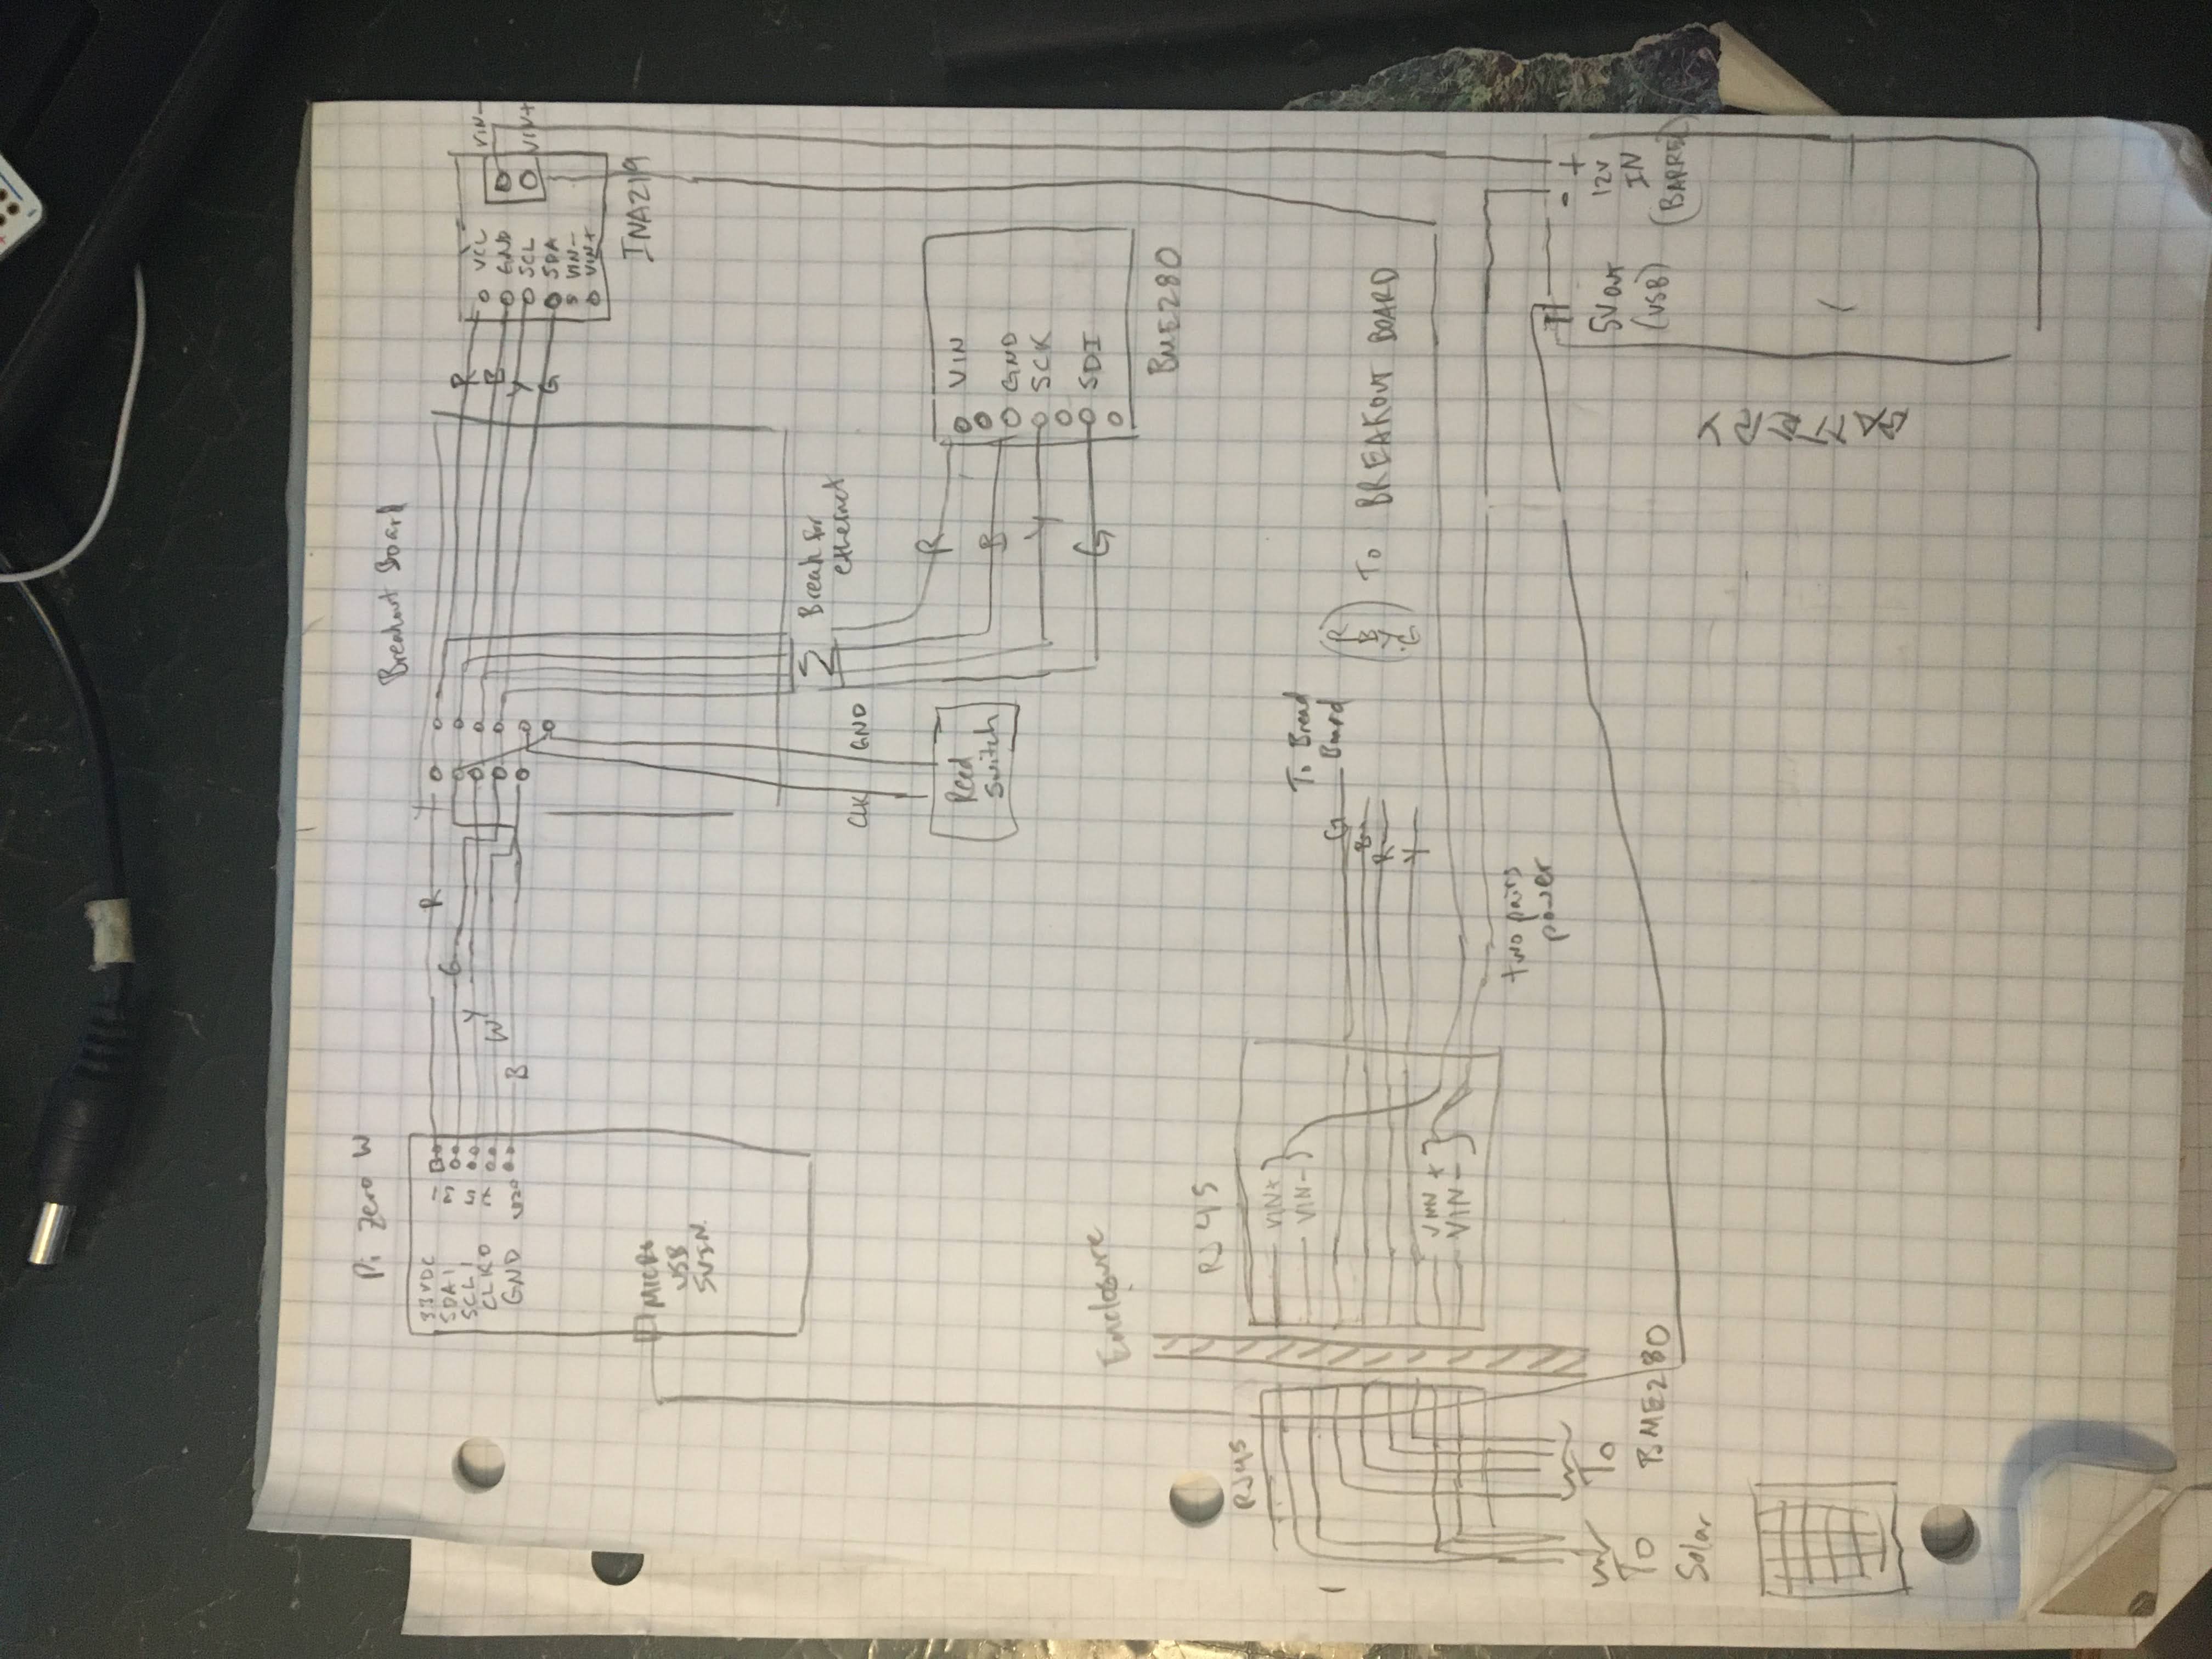 Pi Zero W
3.3VDC
SDA1 3
SCL1 5
CLK0 7
GND
R
G
Y
W
B
MICRO
USB
5VIN
Breakout Board
R
B
Y
G
VCC
GND
SCL
SDA
VIN-
VIN+
VIN-
VIN+
INA219
Break for
ethernet
CLK
GND
Reed
Switch
R
B
Y
G
VIN
GND
SCK
SDI
BME280
Enclosure
RJ45
RJ45
VIN+
VIN-
G
B
R
Y
To Bread
Board
R
B
Y
G
TO BREAKOUT BOARD
VIN+
VIN-
two pairs
power
To
Solar
To
BME280
5VOUT
(USB)
- +
12V
IN
(BARREL)
BATTERY